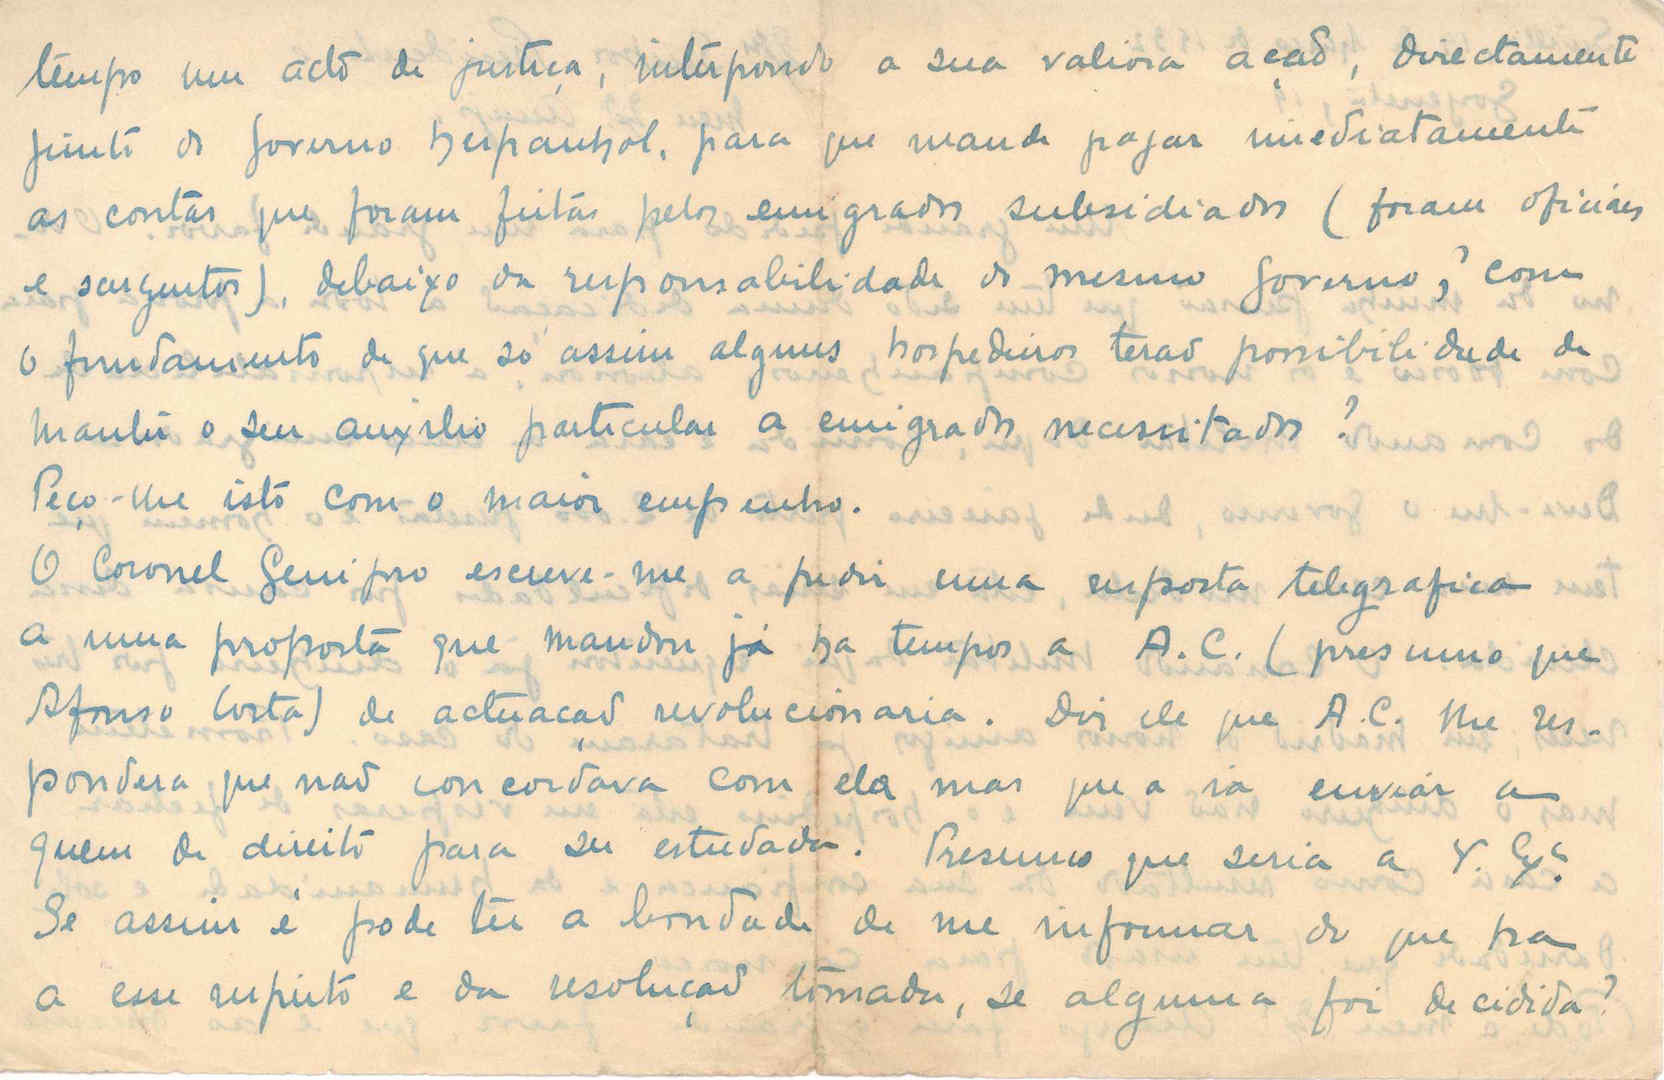 tempo um acto de justiça, interpondo a sua valiosa ação, directamente
junto do Governo hespanhol, para que mande pagar imediatamente
as contas que foram feitas pelos emigrados subsidiados (foram oficiais
e sargentos), debaixo da responsabilidade do mesmo Governo, com
o fundamento de que só assim alguns hospedeiros terão possibilidade de
manter o seu auxilio particular a emigrados necessitados?
Peço-lhe isto com o maior empenho.
O Coronel Genipro escreve-me a pedir uma resposta telegrafica
a uma proposta que mandou já ha tempos a A.C. (presumo que
Afonso Costa) de actuação revolucionaria. Diz ele que A.C. lhe res-
pondera que não concordava com ela mas que a ia enviar a
quem de direito para ser estudada. Presumo que seria a V. Exª.
Se assim é pode ter a bondade de me informar do que ha
a esse respeito e da resolução tomada, se alguma foi decidida?